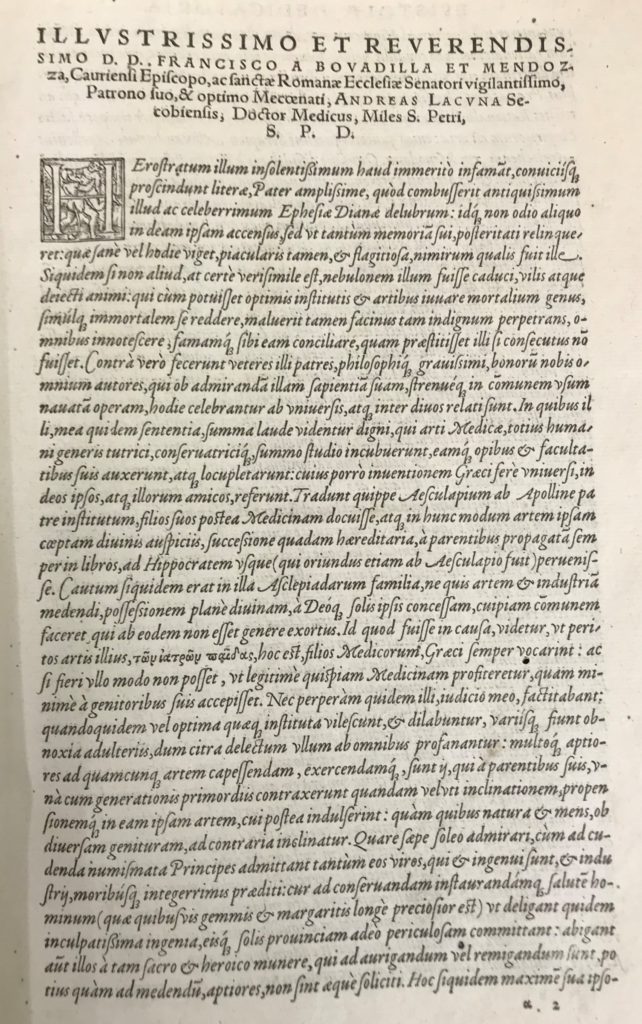 ILLVSTRISSIMO ET REVERENDIS-
SIMO D. D. FRANCISCO A BOVADILLA ET MENDOZ-
za, Cauriensi Episcopo, ac sanctæ Romanæ Ecclesiæ Senatori vigilantissimo,
Patrono suo, & optimo Mecœnati, ANDREAS LACVNA Se-
cobiensis, Doctor Medicus, Miles S. Petri,
S. P. D.
HErostratum illum insolentissimum haud immeritò infamāt, conuiciisq́;
proscindunt literæ, Pater amplissime, quòd combusserit antiquissimum
illud ac celeberrimum Ephesiæ Dianæ delubrum: idq́; non odio aliquo
in deam ipsam accensus, sed vt tantùm memoriā sui, posteritati relinque
ret: quæ sanè vel hodie viget, piacularis tamen, & flagitiosa, nimirum qualis fuit ille.
Siquidem si non aliud, at certè verisimile est, nebulonem illum fuisse caduci, vilis atque
deiecti animi: qui cùm potuisset optimis institutis & artibus iuuare mortalium genus,
simulq́; immortalem se reddere, maluerit tamen facinus tam indignum perpetrans, o-
mnibus innotescere, famamq́; sibi eam conciliare, quam præstitisset illi si consecutus nō
fuisset. Contrà verò fecerunt veteres illi patres, philosophiq́; grauissimi, bonorū nobis o-
mnium autores, qui ob admirandā illam sapientiā suam, strenueq́; in comunem vsum
nauatā operam, hodie celebrantur ab vniuersis, atq; inter diuos relati sunt. In quibus il
li, mea quidem sententia, summa laude videntur digni, qui arti Medicæ, totius huma
ni generis tutrici, conseruatriciq́;, summo studio incubuerunt, eamq́; opibus & faculta-
tibus suis auxerunt, atq; locupletarunt: cuius porrò inuentionem Græci fere vniuersi, in
deos ipsos, atq; illorum amicos, referunt. Tradunt quippe Aesculapium ab Apolline pa
tre institutum, filios suos postea Medicinam docuisse, atq; in hunc modum artem ipsam
cœptam diuinis auspiciis, successione quadam hæreditaria, à parentibus propagatā sem
per in libros, ad Hippocratem vsque (qui oriundus etiam ab Aesculapio fuit) peruenis-
se. Cautum siquidem erat in illa Asclepiadarum familia, ne quis artem & industriā
medendi, possessionem planè diuinam, à Deoq́; solis ipsis concessam, cuipiam cōmunem
faceret, qui ab eodem non esset genere exortus. Id quod fuisse in causa, videtur, vt peri-
tos artis illius, τῶν ἰατρῶν παῖδας, hoc est, filios Medicorum, Græci semper vocarint: ac
si fieri vllo modo non posset, vt legitimè quispiam Medicinam profiteretur, quàm mi-
nimè à genitoribus suis accepisset. Nec perperàm quidem illi, iudicio meo, factitabant:
quandoquidem vel optima quæq; instituta vilescunt, & dilabuntur, variisq́; fiunt ob-
noxia adulteriis, dum citra delectum vllum ab omnibus profanantur: multoq́; aptio-
res ad quamcunq; artem capessendam, exercendamq́;, sunt ij, qui à parentibus suis, v-
nà cum generationis primordiis contraxerunt quandam veluti inclinationem, propen
sionemq́; in eam ipsam artem, cui postea indulserint: quàm quibus natura & mens, ob
diuersam genituram, ad contraria inclinatur. Quare sæpe soleo admirari, cùm ad cu-
denda numismata Principes admittant tantùm eos viros, qui & ingenui sunt, & indu
strij, moribúsq; integerrimis præditi: cur ad conseruandam instaurandámq; salutē ho-
minum (quæ quibusvis gemmis & margaritis longè preciosior est) vt deligant quidem
inculpatissima ingenia, eisq́; solis prouinciam adeò periculosam committant: abigant
aūt illos à tam sacro & heroico munere, qui ad aurigandum vel remigandum sunt, po
tius quàm ad medendū, aptiores, non sint æquè soliciti. Hoc siquidem maximè sua ipso-
a 2